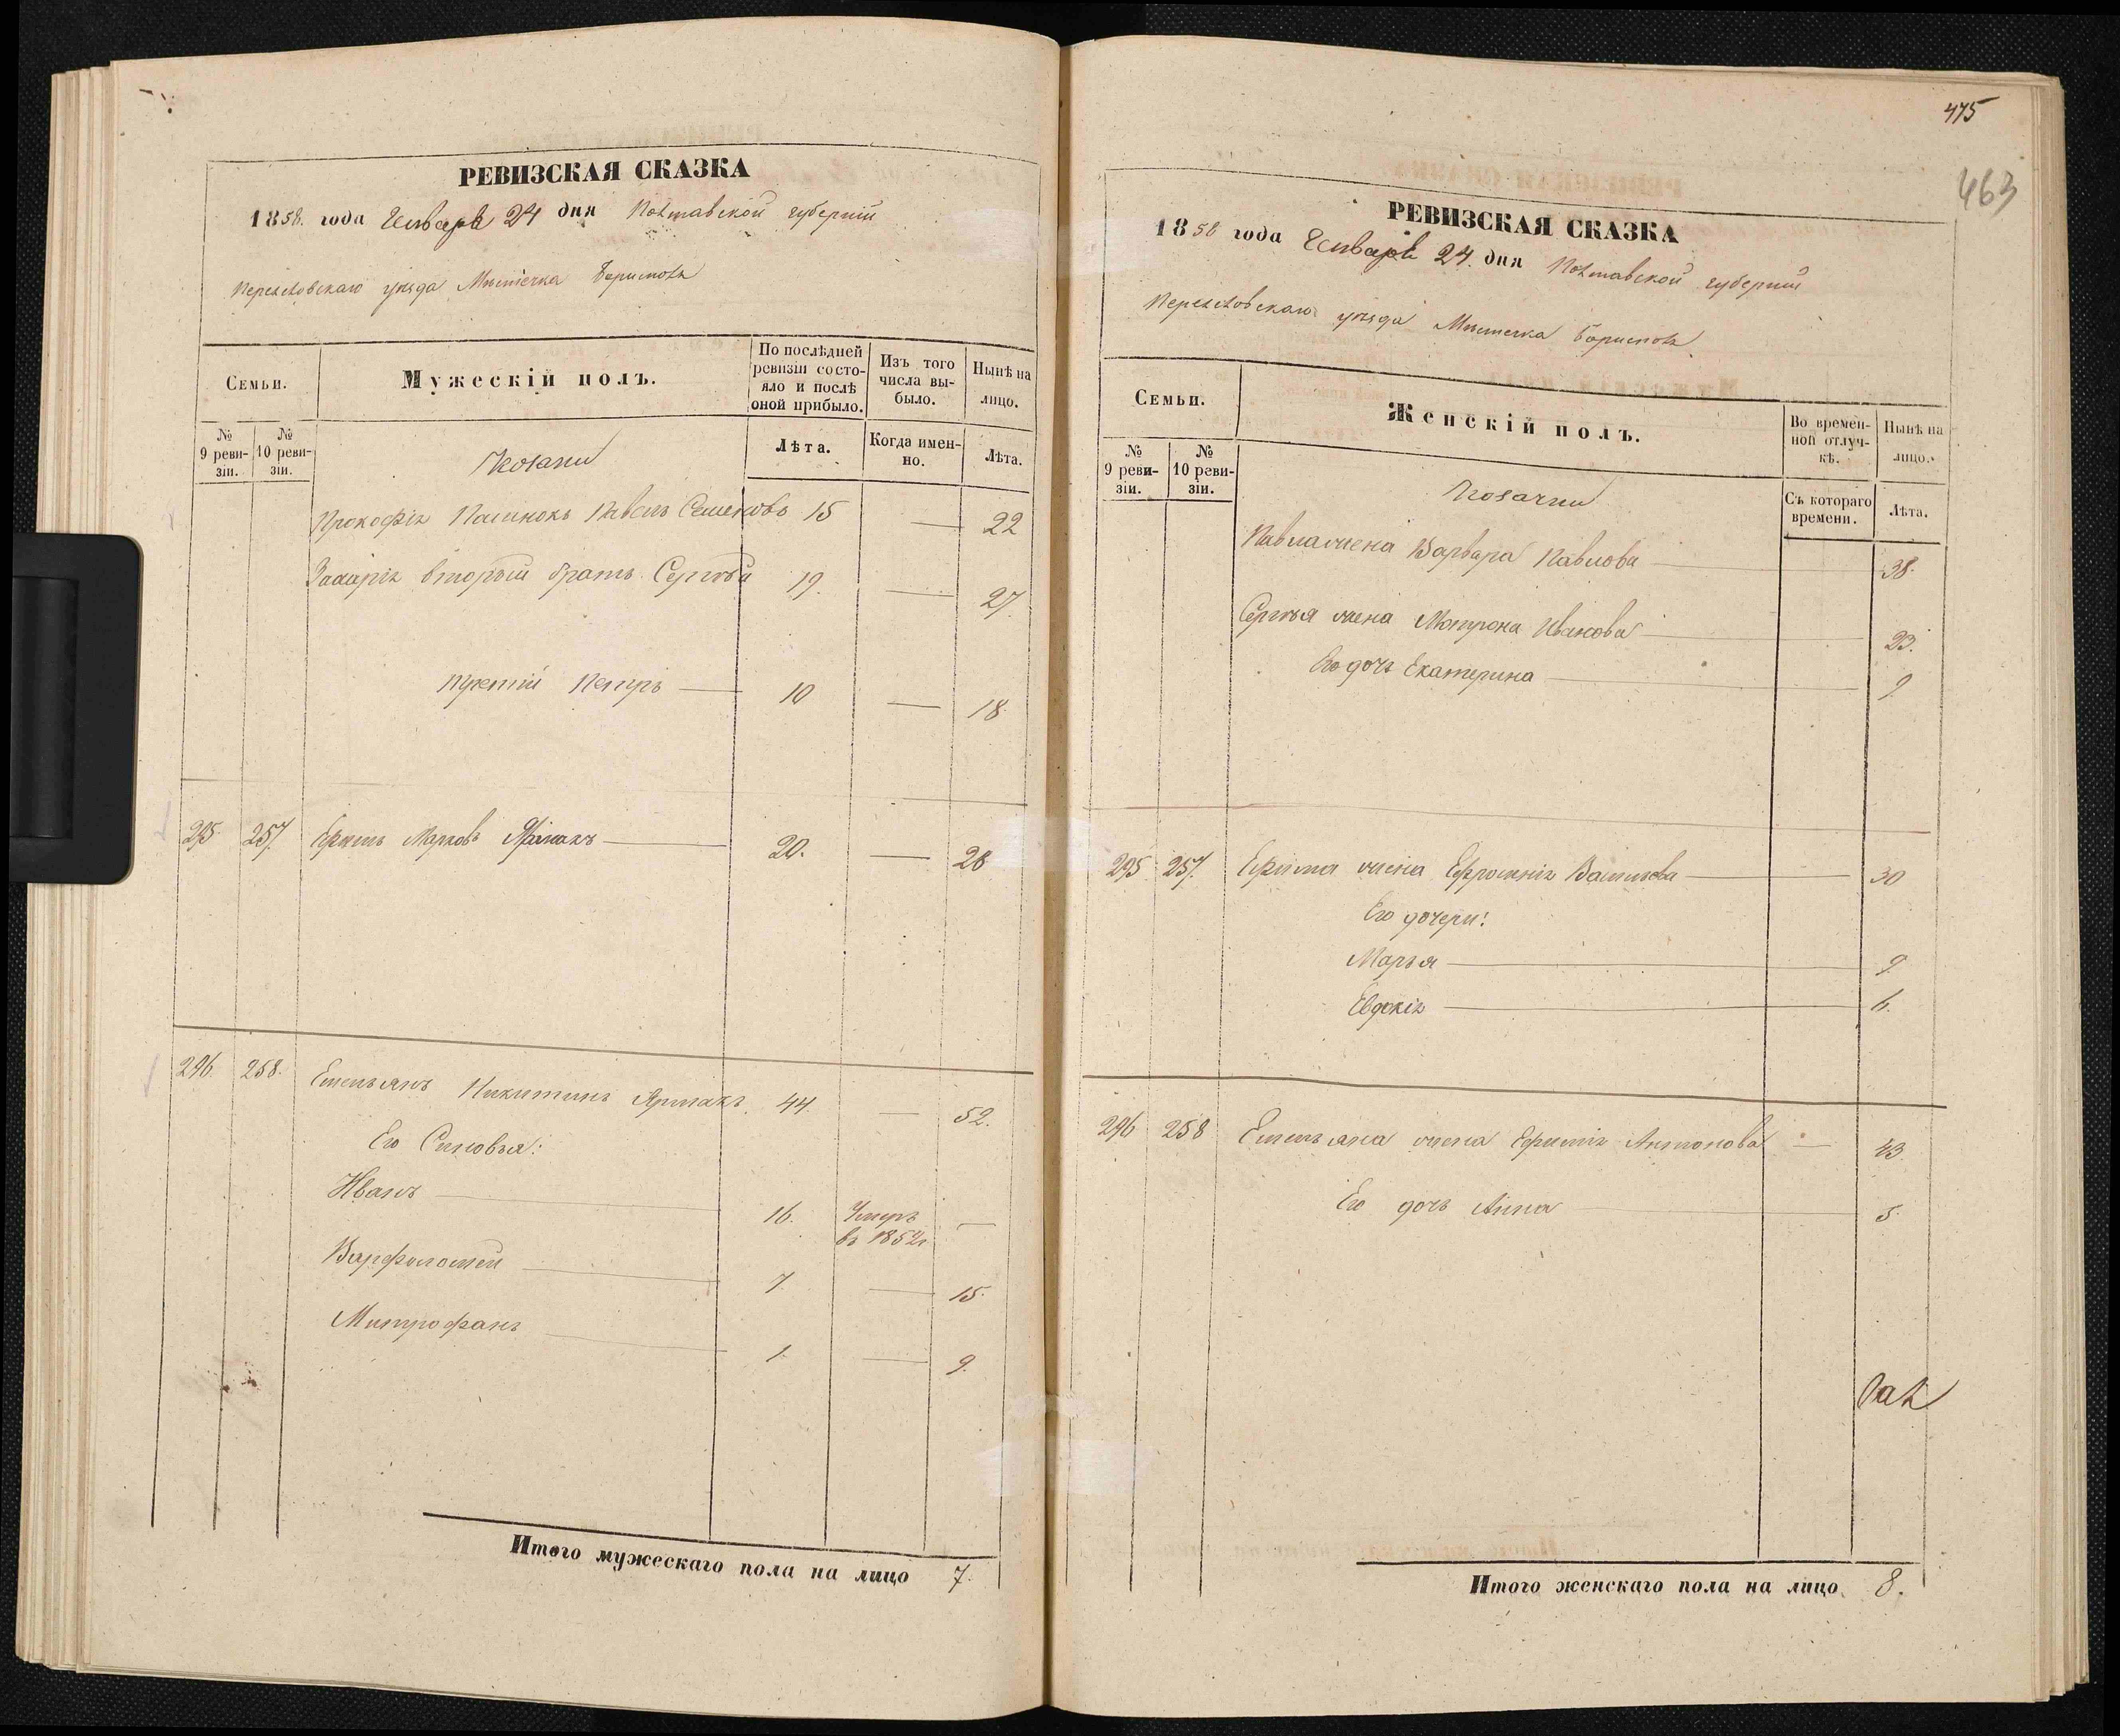 РЕВИЗСКАЯ СКАЗКА
1858. года Января 24 дня Полтавской губерніи
Переяславскаго уѣзда Мѣстечка Борисполя
Семьи.
Мужескій полъ.
По послѣдней ревизіи состояло и послѣ оной прибыло.
Изъ того числа выбыло.
Нынѣ на лицо.
№ 9 ревизіи.
№ 10 ревизіи.
Козаки
Лѣта.
Когда именно.
Лѣта.
Прокофія Пасинокъ Павелъ Семеновъ 15 — 22
Захарія вторый братъ Сергѣй 19. — 27.
третій Петръ — 10 — 18.
295. 257. Ефимъ Марковъ — 20. — 28
296. 258. Емельянъ Никитинъ Ярмакъ. 44 — 52.
Его Сыновья:
Иванъ — 16. Умеръ —
въ 1852г
Варфоломей — 7 — 15.
Митрофанъ — 1. — 9.
Итого мужескаго пола на лицо 7.
475
463
РЕВИЗСКАЯ СКАЗКА
1858 года Января 24. дня Полтавской губерніи
Переяславскаго уѣзда Мѣстечка Борисполя.
Семьи.
Женскій полъ.
Во временной отлучкѣ.
Нынѣ на лицо.
№ 9 ревизіи.
№ 10 ревизіи.
Козачки
Съ котораго времени.
Лѣта.
Павла жена Варвара Павлова — 38.
Сергѣя жена Мотрона Иванова — 23.
Его дочь Екатерина — 9
295 257. Ефима жена Ефросинія Васильева — 30
Его дочери:
Марья — 9
Евдокія — 6.
296 258 Емельяна жена Ефимія Антонова — 43
Его дочь Анна — 5.
Итого женскаго пола на лицо 8.